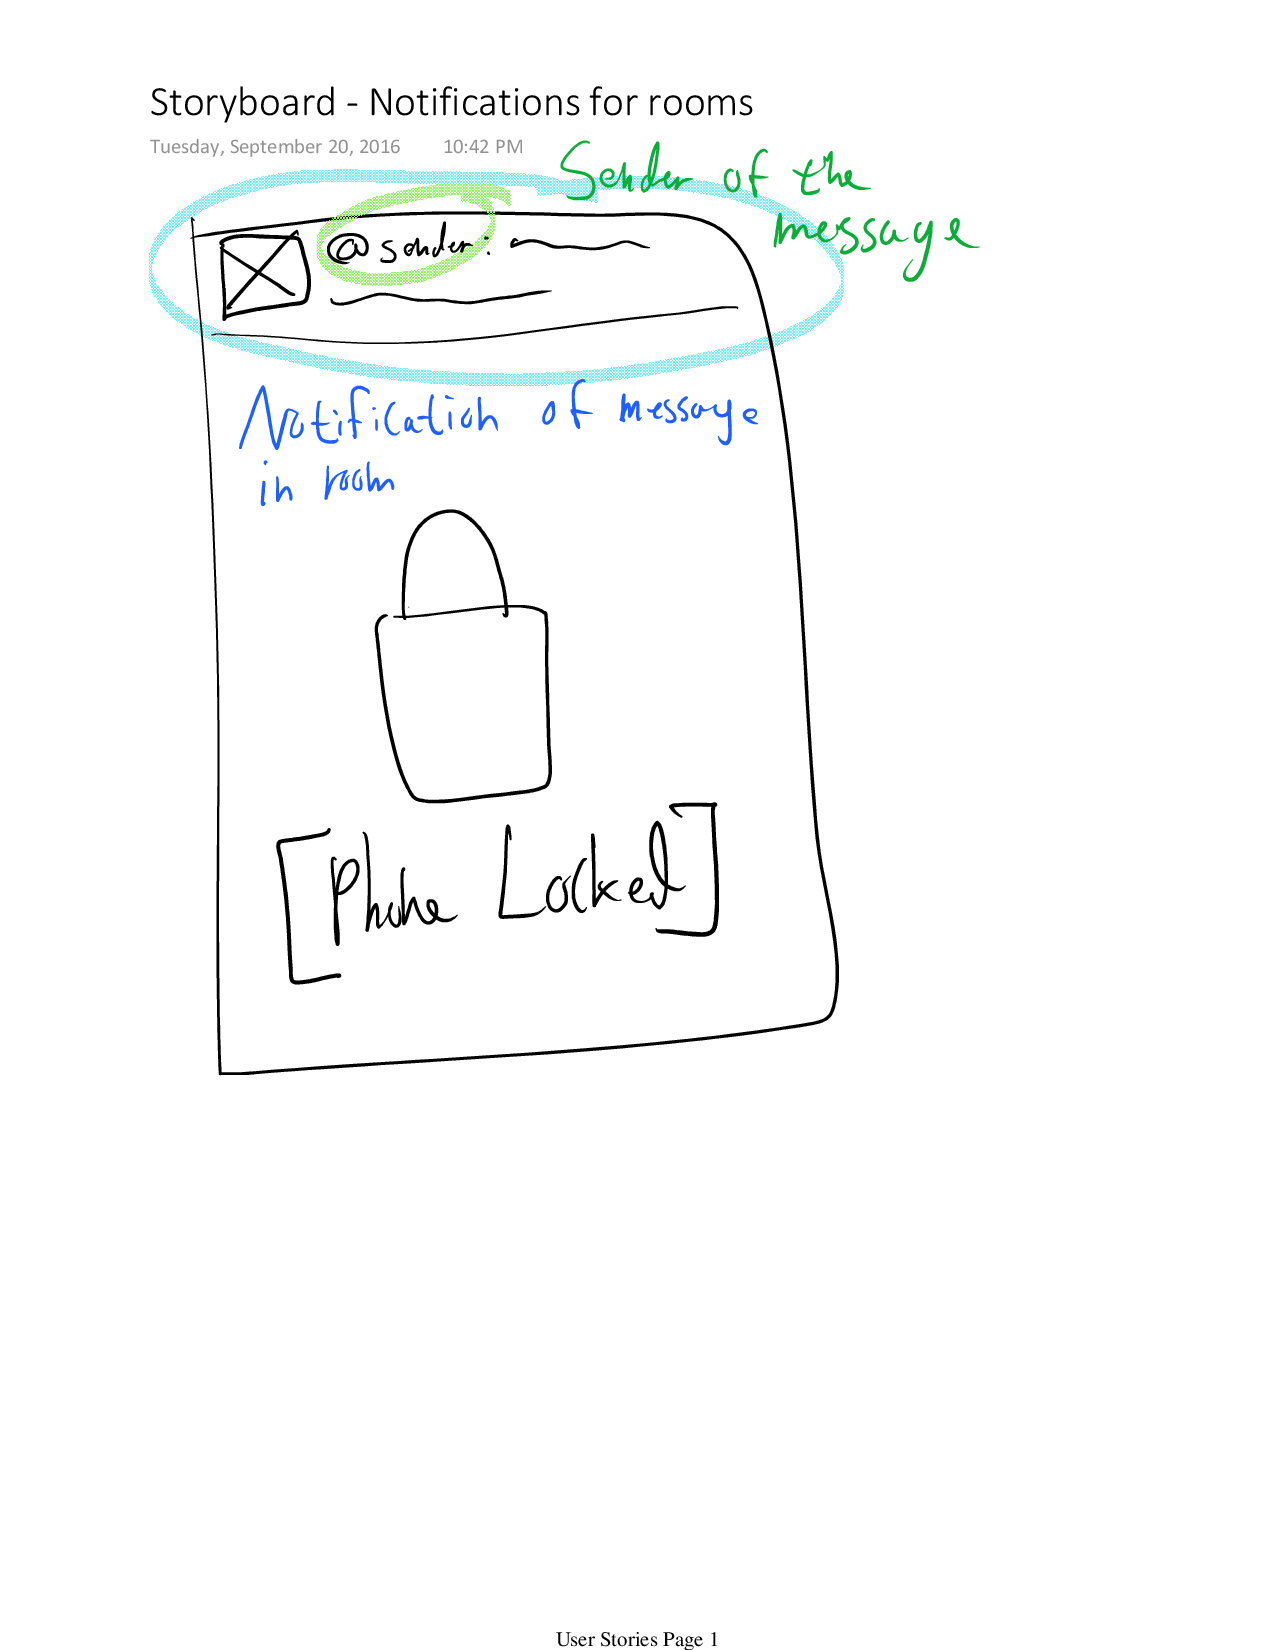 Storyboard - Notifications for rooms
Tuesday, September 20, 2016 10:42 PM
Sender of the
message
@sender:
Notification of message
in room
[Phone Locked]
User Stories Page 1